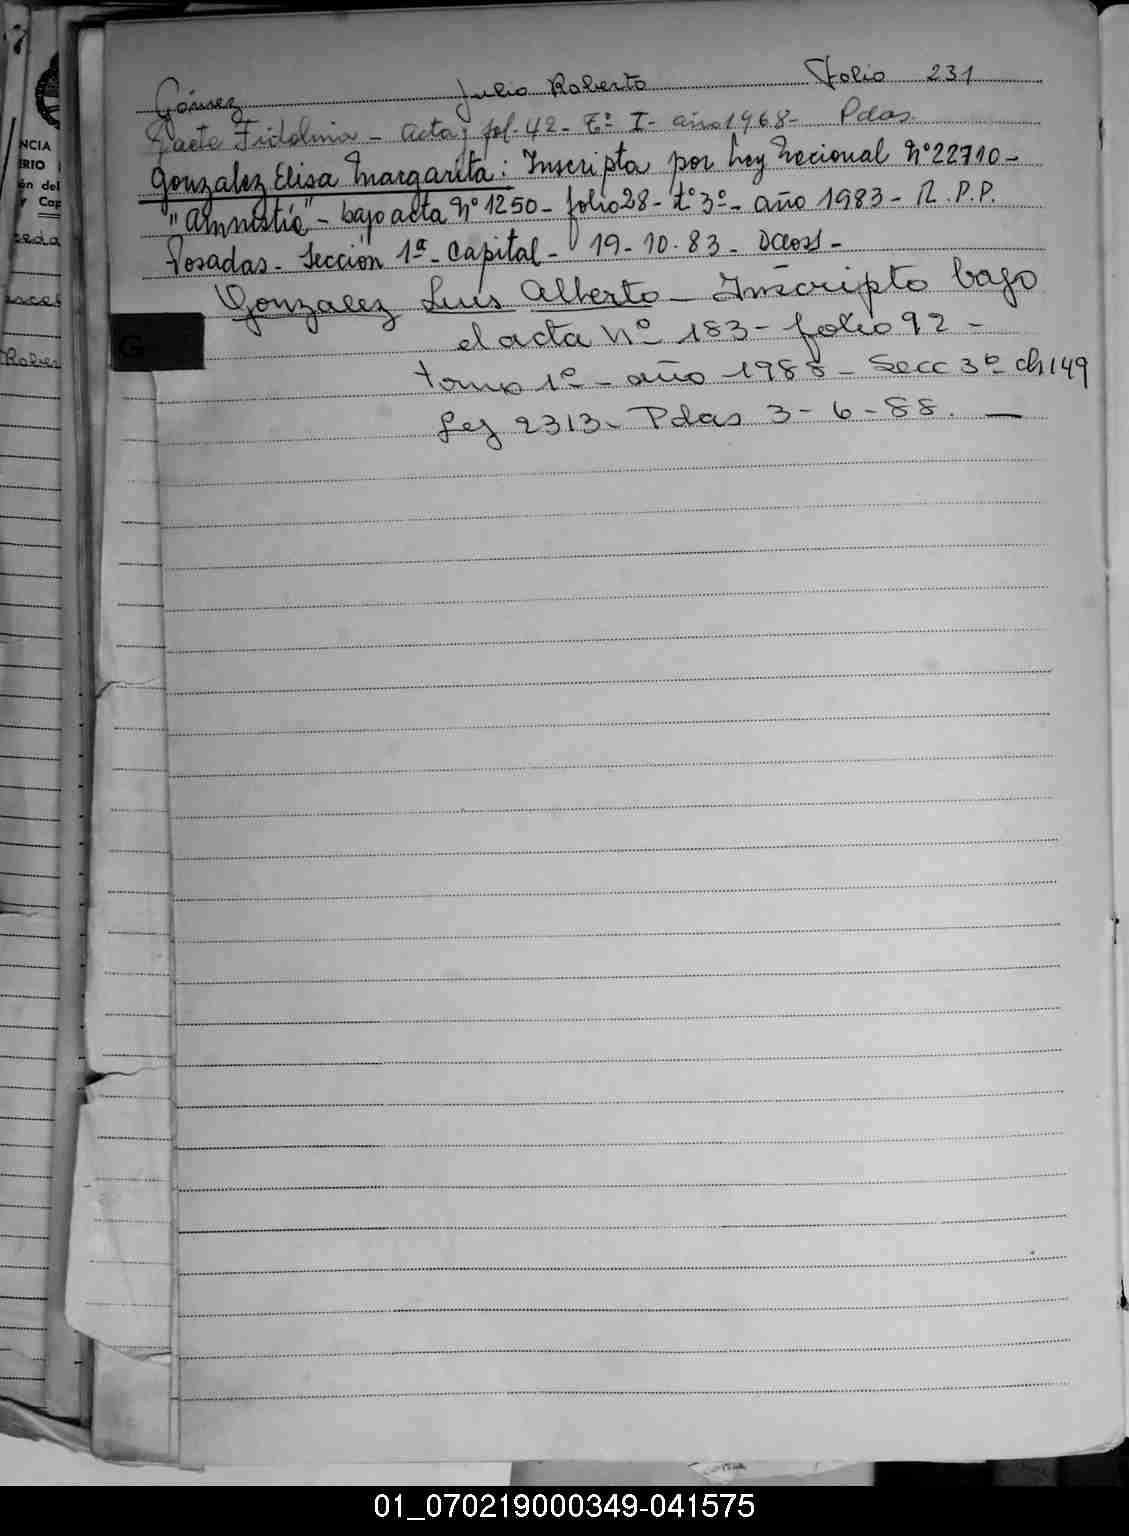 Gómez Julio Roberto Folio 231
Gaete Fidelina - acta, fol. 42 - Tº I - año 1968 - Pdas.
Gonzalez Elisa Margarita: Inscripta por Ley Nacional Nº 22710 -
"Amnistía" - bajo acta Nº 1250 - folio 28 - tº 3º - año 1983 - R.P.P.
Posadas - Sección 1ª - Capital - 19-10-83 -
Gonzalez Luis Alberto - Inscripto bajo
el acta Nº 183 - folio 92 -
G
tomo 1º - año 1988 - Secc 3º ch 149
Ley 2313 - Pdas 3-6-88. -
NCIA
RIO
ón del
y Cap
01_070219000349-041575